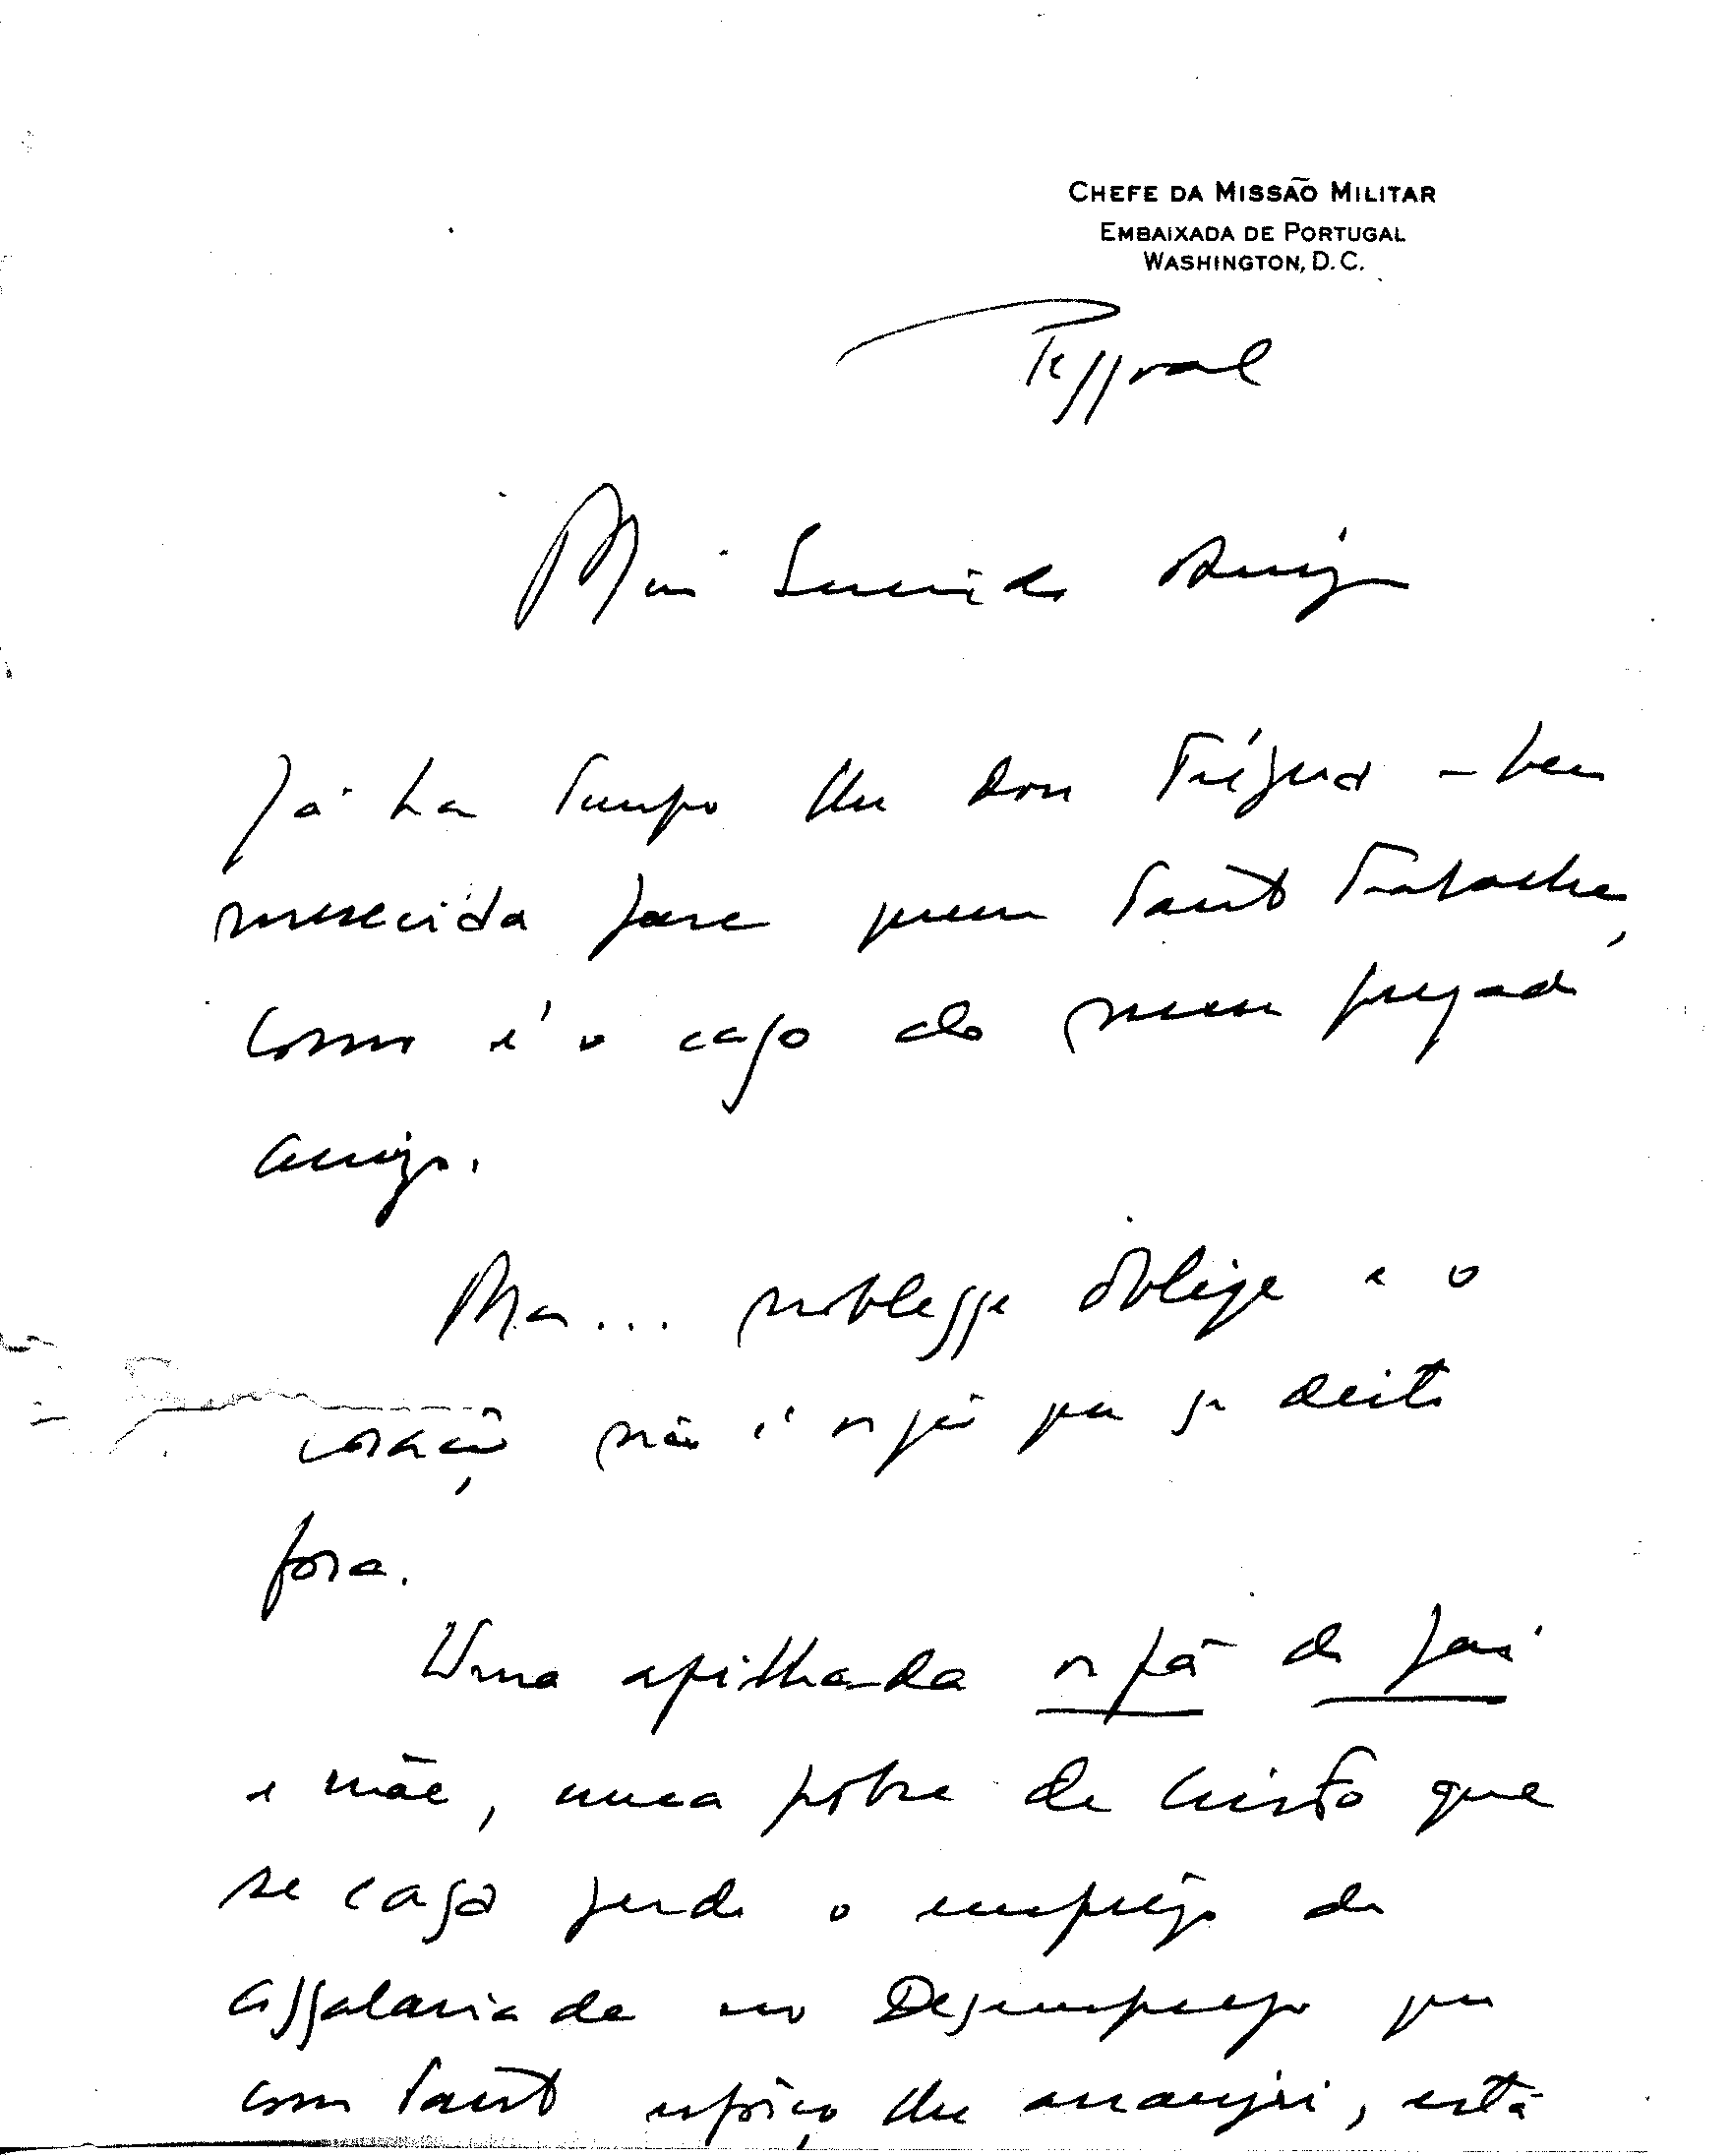 CHEFE DA MISSÃO MILITAR
EMBAIXADA DE PORTUGAL
WASHINGTON, D.C.
Pessoal
Meu Querido Amigo
Já ha tempo lhe dou trégua - bem
merecida para quem tanto trabalha,
como é o caso do meu prezado
amigo.
Mas... noblesse oblige e o
coração não é orgão que se deite
fora.
Uma afilhada orfã de pai
e mãe, uma pobre de Cristo que
se casa perde o emprêgo de
assalariada no Desemprego que
com tanto esforço lhe arranjei, está